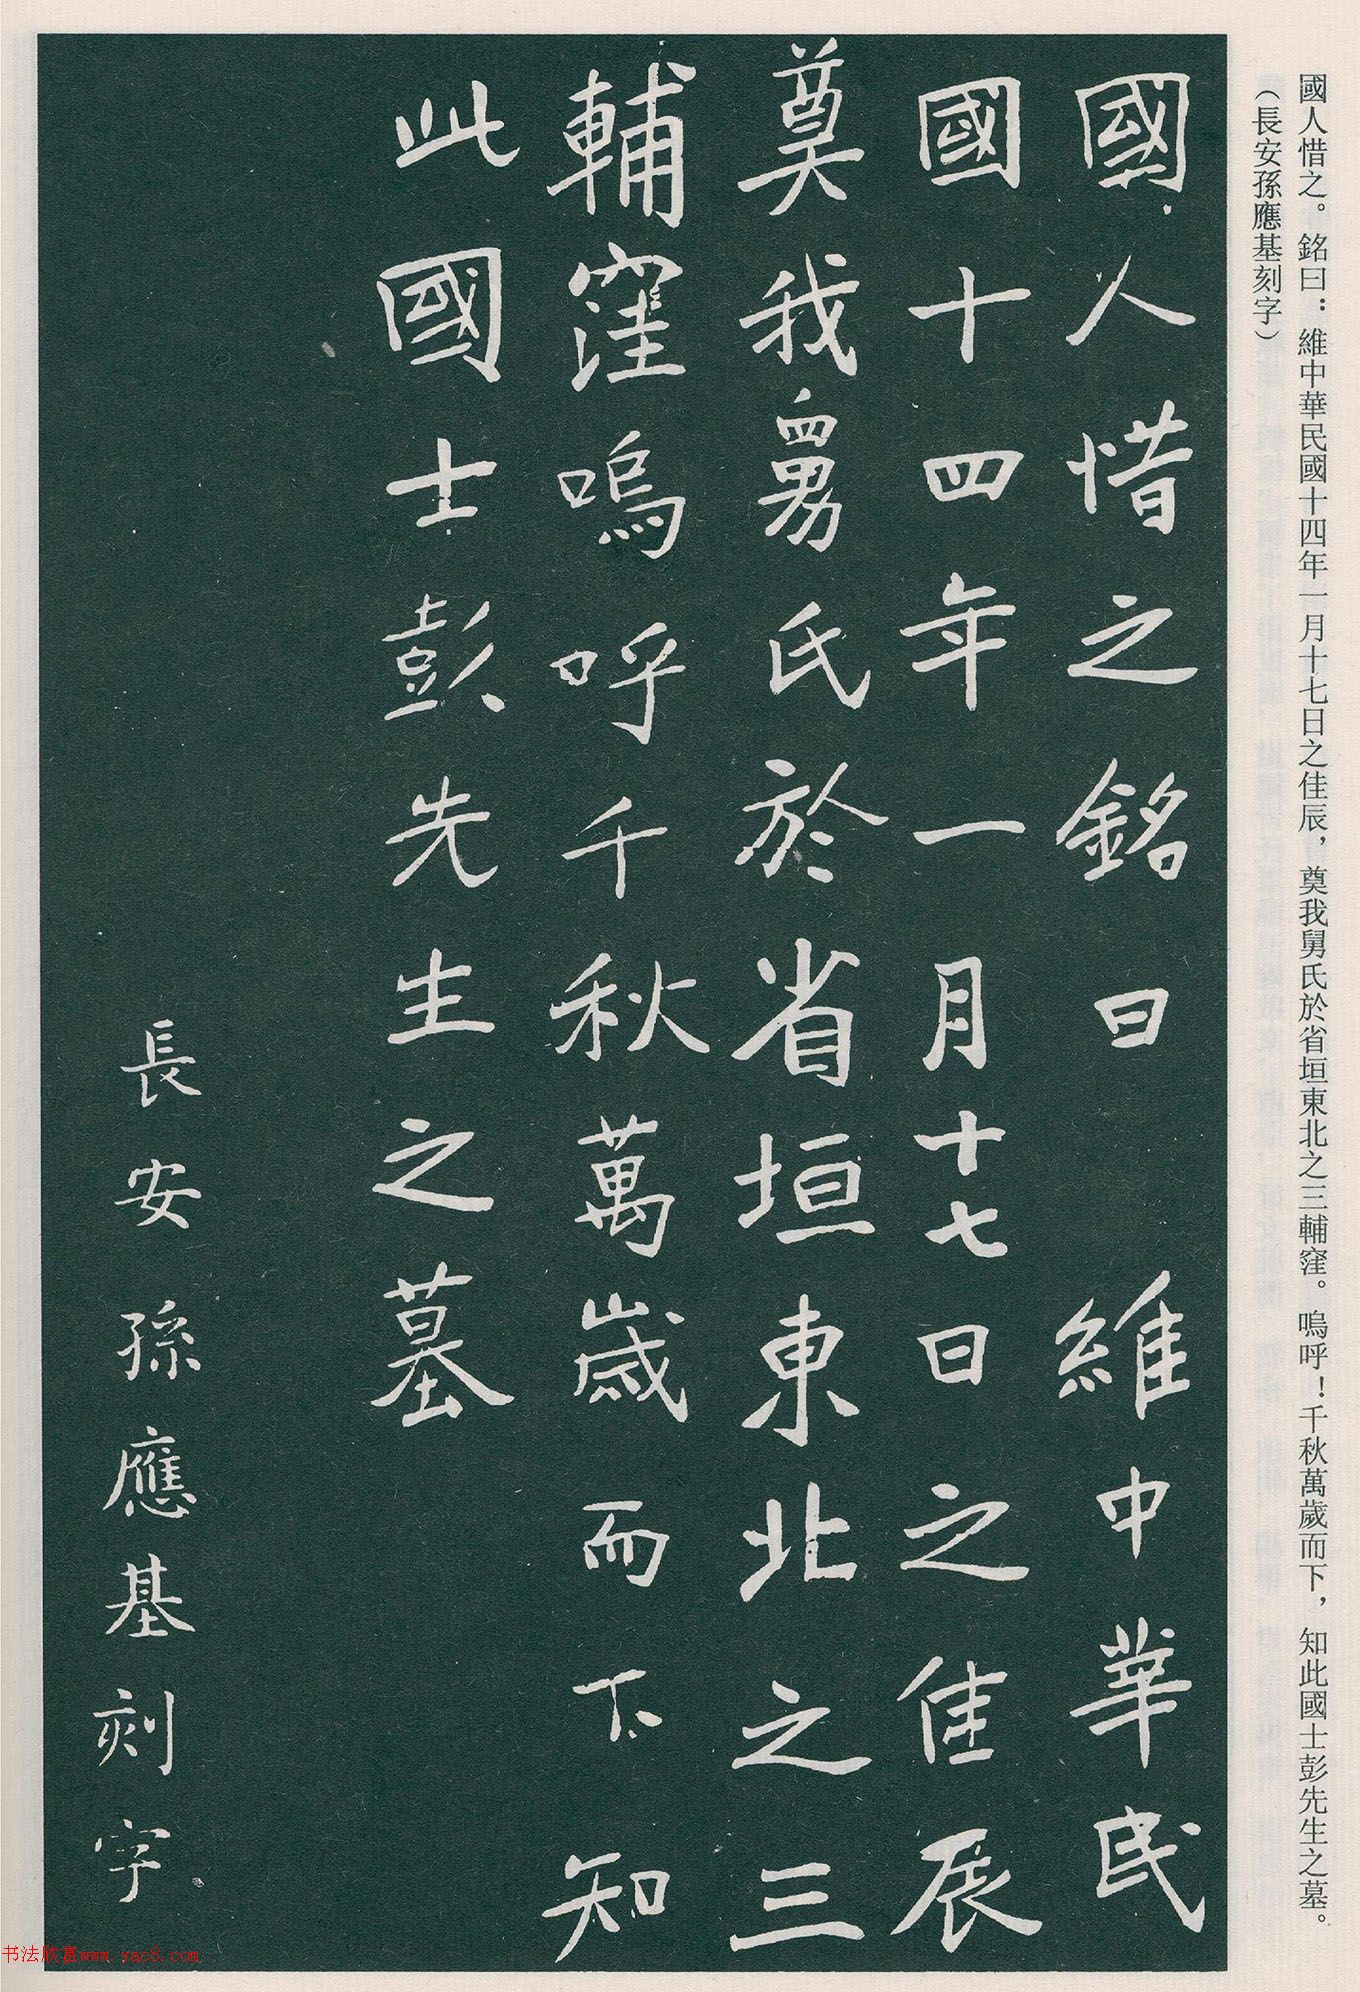 國人惜之。銘曰：維中華民國十四年一月十七日之佳辰，奠我舅氏於省垣東北之三輔窪。嗚呼！千秋萬歲而下，知此國士彭先生之墓。
（長安孫應基刻字）
國人惜之銘曰維中華民
國十四年一月十七日之佳辰
奠我舅氏於省垣東北之三
輔窪嗚呼千秋萬歲而下知
此國士彭先生之墓
長安孫應基刻字
书法欣赏www.yac8.com